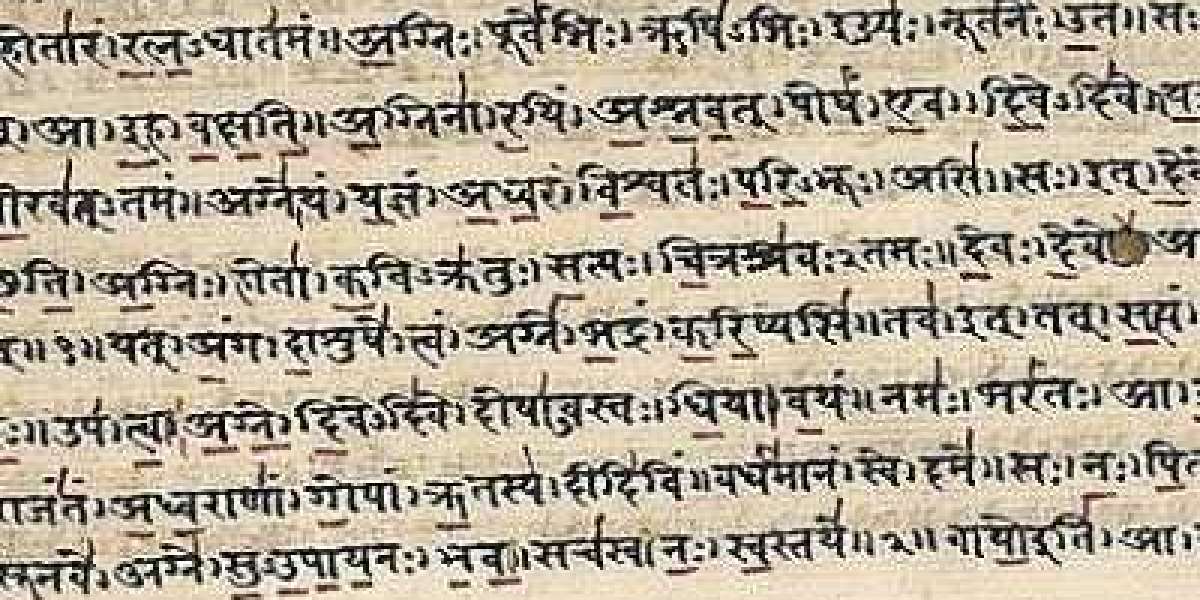 होतारं।रत्नऽधातमं॥अग्निः।पूर्वेभिः।ऋषिऽभिः।ईड्यः।नूतनैः।उत॥सः
आ।इह।वक्षति॥अग्निना।रयिं।अश्नवत्।पोषं।एव।दिवेऽदिवे॥
वीरवत्ऽतमं॥अग्ने।यं।यज्ञं।अध्वरं।विश्वतः।परिऽभूः।असि॥सः।इत्।देवे
अग्निः।होता।कविऽक्रतुः।सत्यः।चित्रश्रवःऽतमः॥देवः।देवे
॥१॥यत्।अंग।दाशुषे।त्वं।अग्ने।भद्रं।करिष्यसि॥तव।इत्।तत्।सत्यं
॥उप।त्वा।अग्ने।दिवेऽदिवे।दोषाऽवस्तः।धिया।वयं॥नमः।भरंतः।आ।
राजंतं।अध्वराणां।गोपां।ऋतस्य।दीदिविं॥वर्धमानं।स्वे।दमे॥सः।नः।पि
सूनवे।अग्ने।सुऽउपायनः।भव॥सचस्व।नः।स्वस्तये॥२॥वायो।आ।